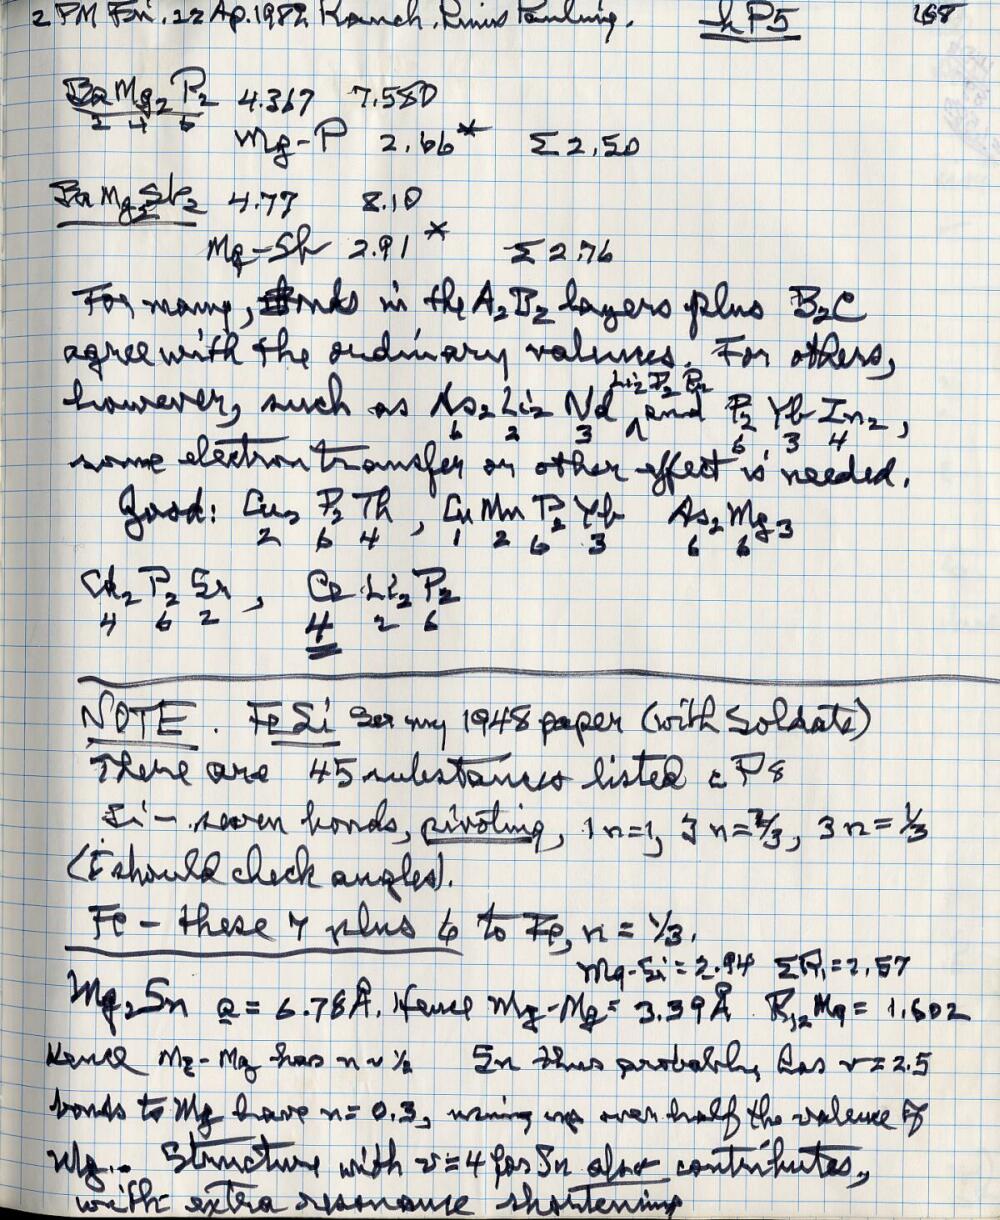 2 PM Fri. 22 Ap. 1982 Ranch. Linus Pauling. hP5 168
BaMg2P2 4.367 7.580
2 4 6
Mg-P 2.66* Σ 2.50
BaMg2Sb2 4.77 8.10
Mg-Sb 2.91* Σ 2.76
For many, bonds in the A2B2 layers plus B2C
agree with the ordinary valences. For others,
Li2P2Pr
however, such as As2Li2Nd ^ and P2YbZn2,
6 2 3 6 3 4
some electron transfer or other effect is needed.
Good: Cu2P2Th, CuMnP2Yb As2Mg3
2 6 4 1 2 6 3 6 6
Cd2P2Sr, CeLi2P2
4 6 2 4 2 6
NOTE. FeSi See my 1948 paper (with Soldate)
There are 45 substances listed cP8
Si — seven bonds, pivoting, 1 n=1, 3 n=2/3, 3 n=1/3
(I should check angles).
Fe — these 7 plus 6 to Fe, n = 1/3.
Mg-Si = 2.94 ΣR1=2.57
Mg2Sn a = 6.78Å. Hence Mg-Mg = 3.39Å. R12 Mg = 1.602
Hence Mg-Mg has n ~ 1/2 Sn thus probably has v=2.5
bonds to Mg have n=0.3, using up over half the valence of
Mg. Structure with v=4 for Sn also contributes,
with extra resonance shortening